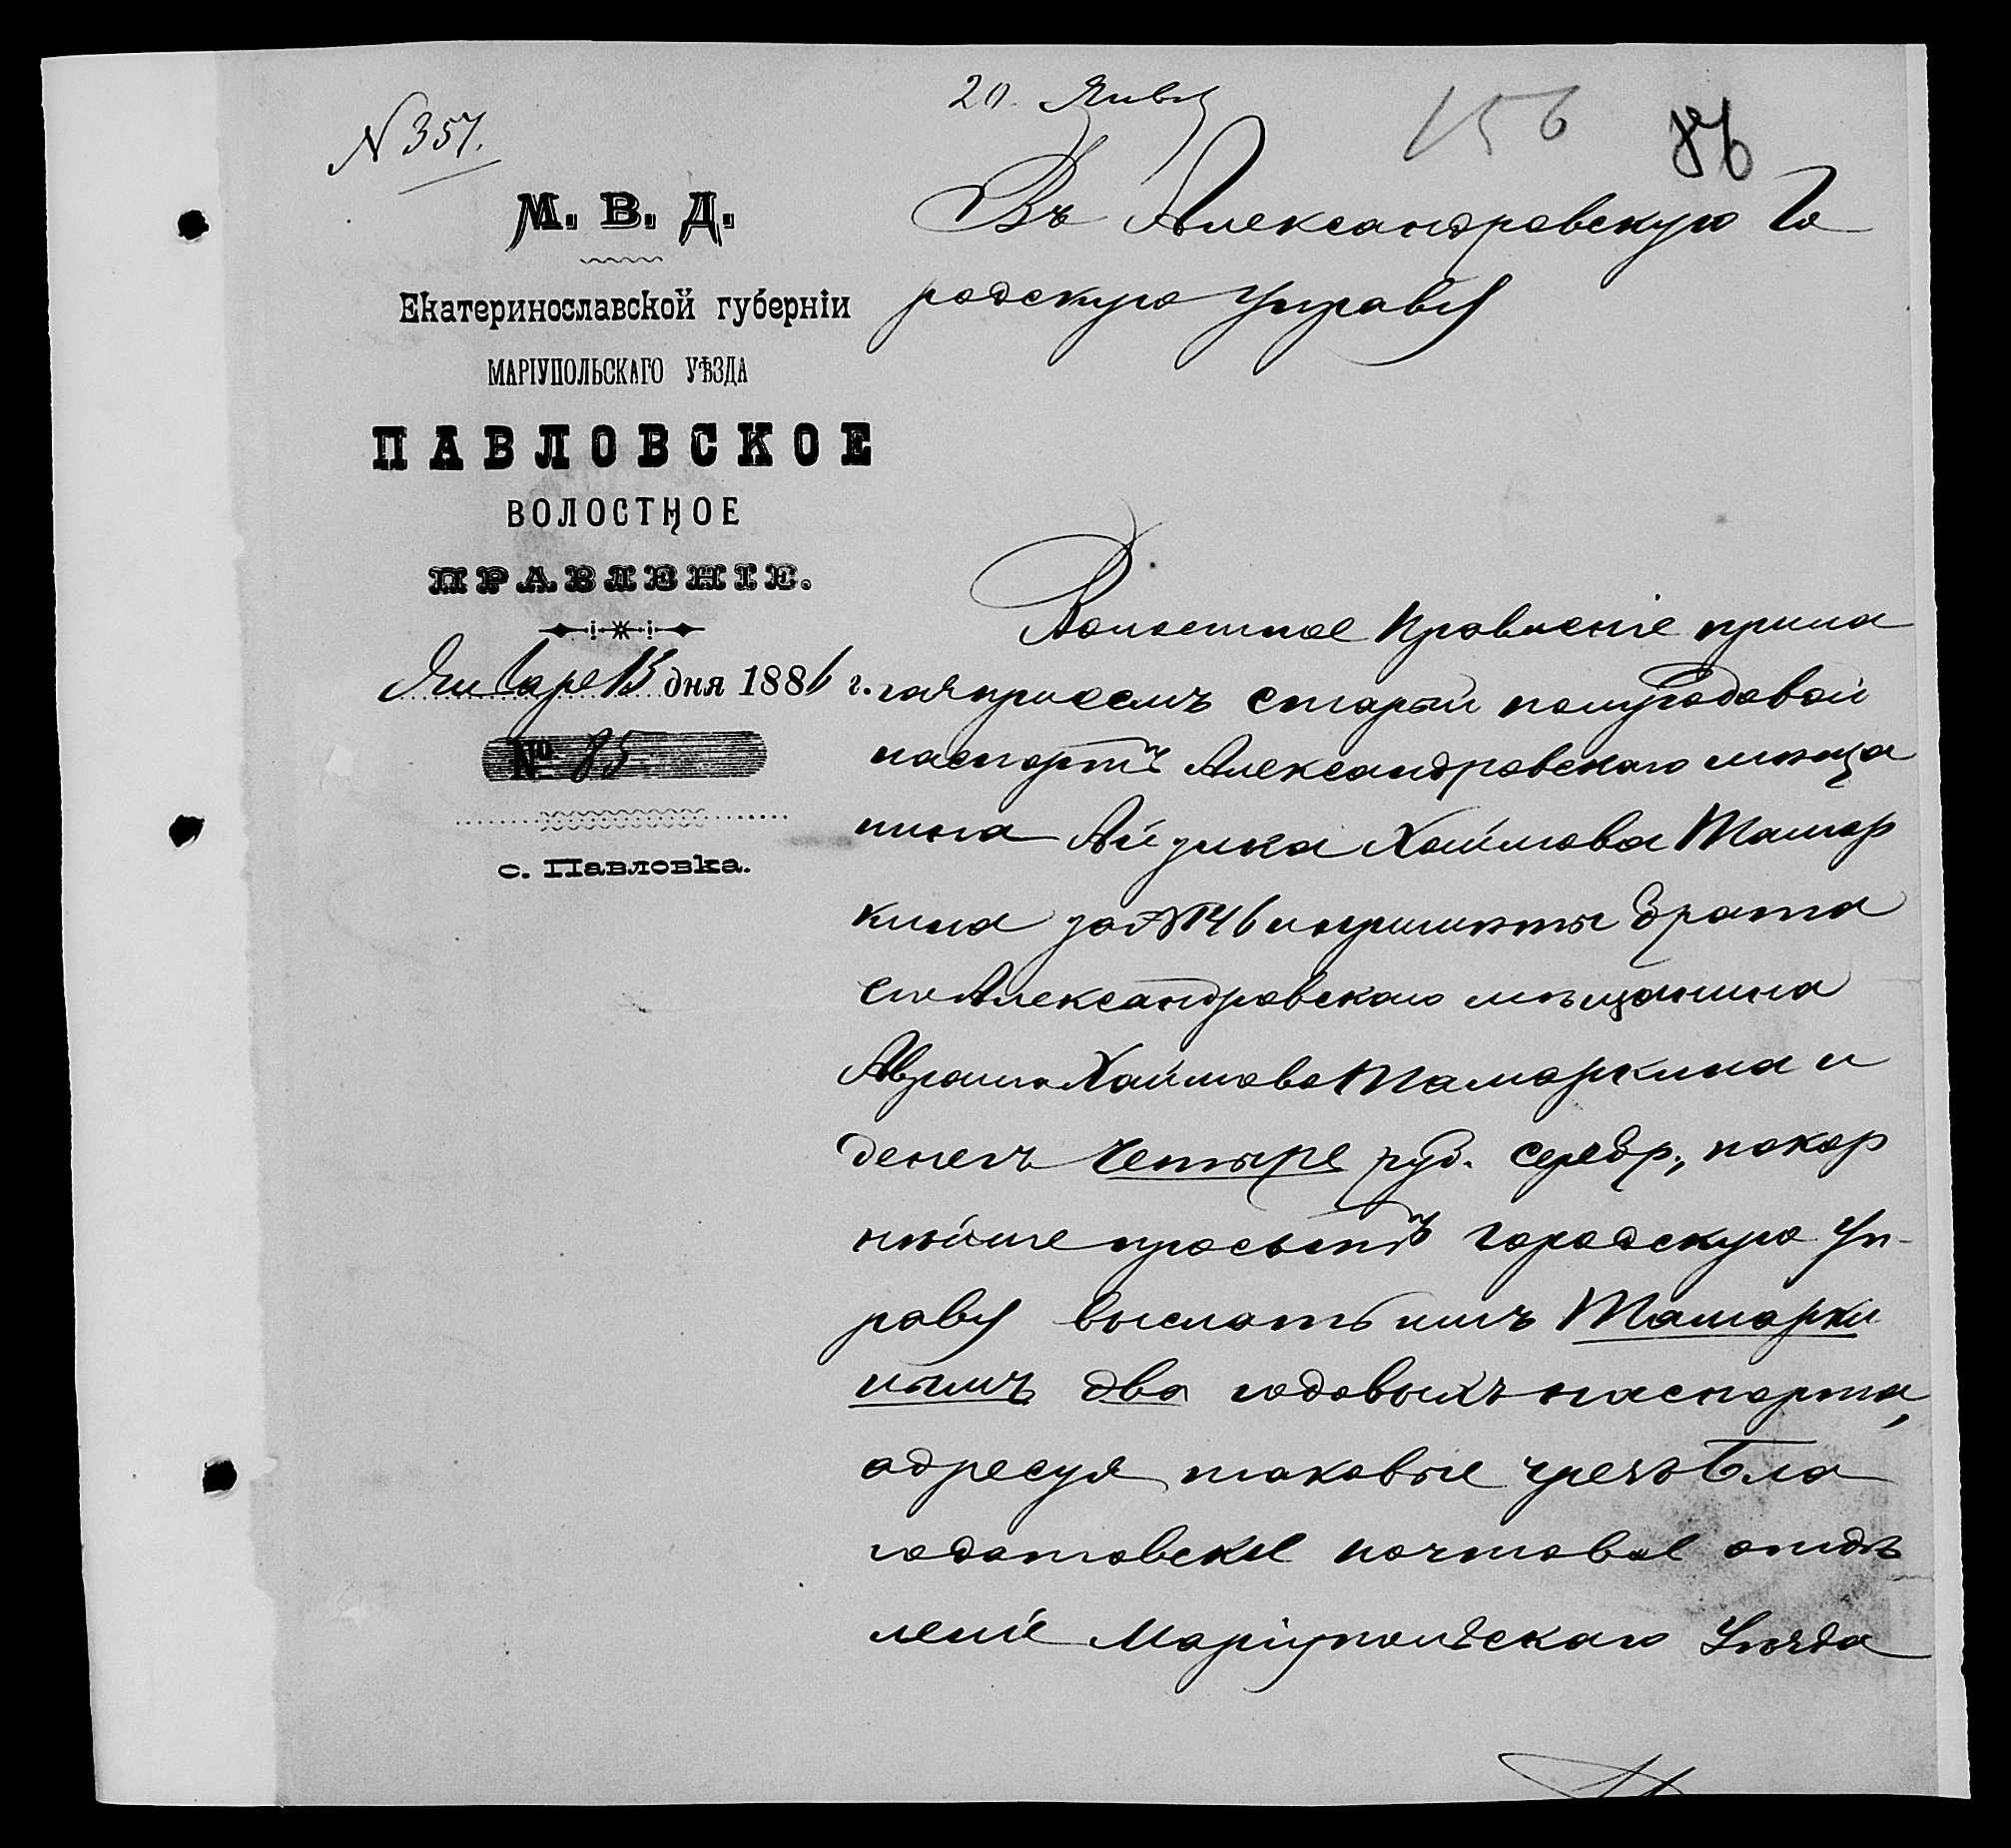 20. Янвр
156
86
N 357.
М. В. Д.
Екатеринославской губерніи
МАРІУПОЛЬСКАГО УѢЗДА
ПАВЛОВСКОЕ
ВОЛОСТНОЕ
ПРАВЛЕНІЕ.
Января 13 дня 1886 г.
№ 85
с. Павловка.
Въ Александровскую Го
родскую Управу
Волостное Правленіе прила
гая присемъ старый полугодовой
паспортъ Александровскаго мѣща
нина Айзика Хаимова Тамар
кина за № 146 и примѣты брата
его Александровскаго мѣщанина
Аврама Хаимова Тамаркина и
денегъ четыре руб. серебр., покор
нѣйше проситъ Городскую Уп-
раву выслать имъ Тамарки
нымъ два годовыхъ паспорта,
адресуя таковые чрезъ Бла
годатовское почтовое отдѣ
леніе Маріупольскаго Уѣзда